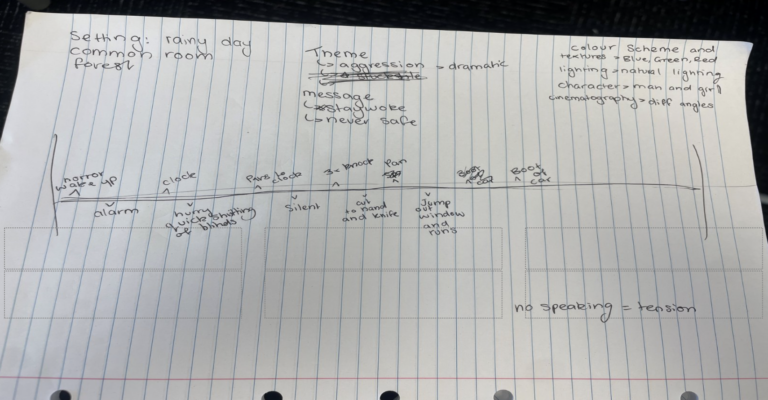 Setting: rainy day
common room
forest
Theme
↳ aggression > dramatic
message
↳ stay woke
↳ never safe
colour scheme and
textures > Blue, Green, Red
lighting > natural lighting
character > man and girl
cinematography > diff angles
horror
wake up
clock
Pans to
clock
3x knock
Pan
Boot
of
car
alarm
quick shutting
of blinds
Silent
cut
to hand
and knife
Jump
out
window
and
runs
no speaking = tension